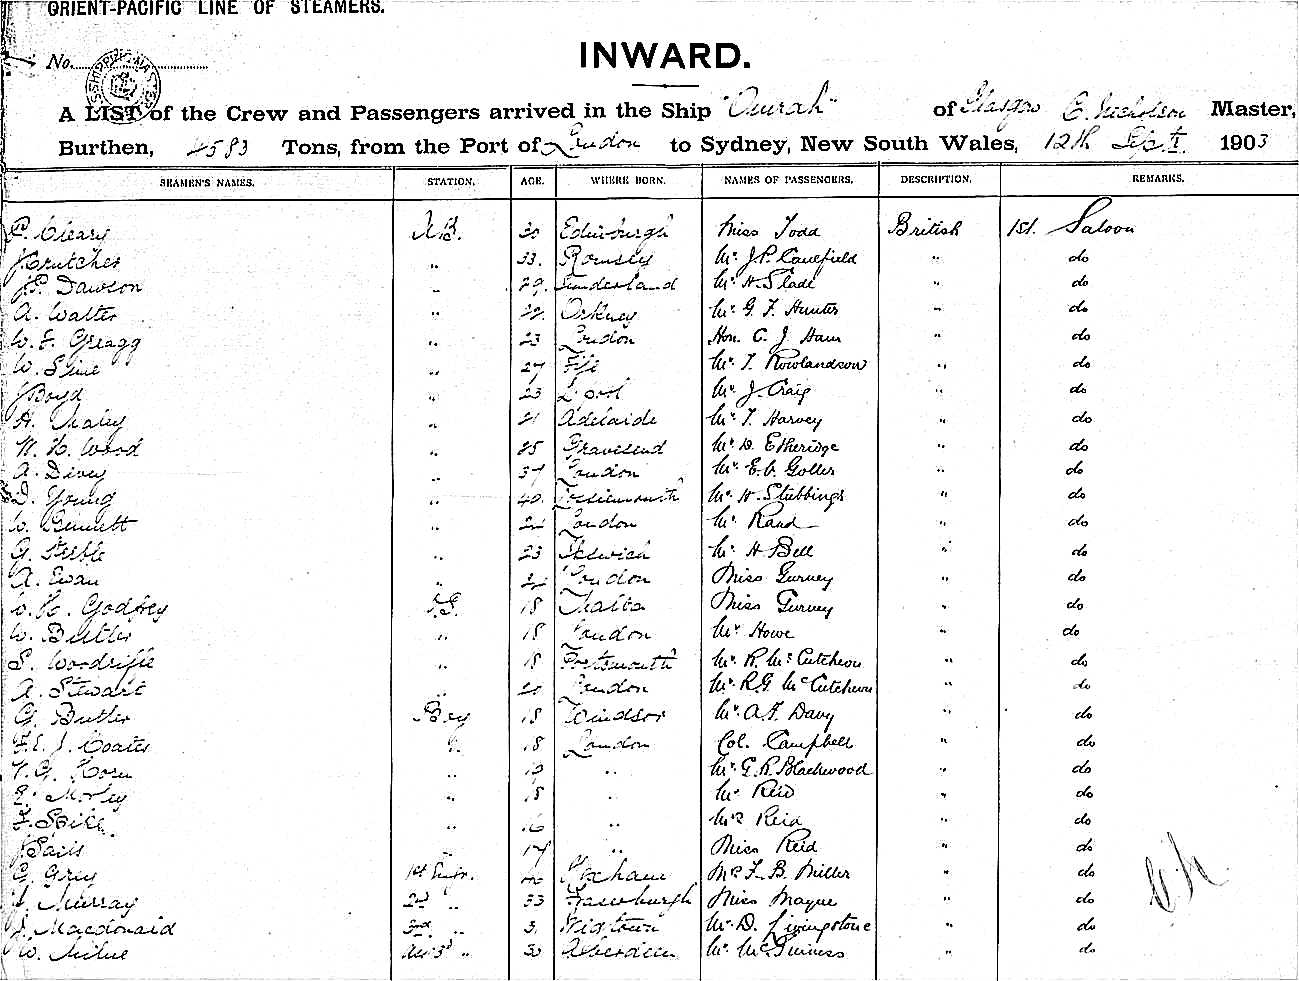 ORIENT-PACIFIC LINE OF STEAMERS.
INWARD.
No.
A LIST of the Crew and Passengers arrived in the Ship "Omrah" of Glasgow C. Nicholson Master,
Burthen, 4583 Tons, from the Port of London to Sydney, New South Wales, 12th Sept. 1903
SEAMEN'S NAMES. STATION. AGE. WHERE BORN. NAMES OF PASSENGERS. DESCRIPTION. REMARKS.
P. Cleary A.B. 20 Edinburgh Miss Todd British 1st. Saloon
J Crutcher " 33. Romsey Mr. J.P. Caulfield " do
J.P. Dawson " 29. Sunderland Mr. H. Slade " do
A. Walter " 22. Orkney Mr. G. F. Hunter " do
W. E. Gragg " 23 London Hon. C. J Ham " do
W. " 27 Fife Mr. T. Rowlandson " do
J Boyd " 23 L'pool Mr. J. Craig " do
H. " 21 Adelaide Mr. T. Harvey " do
W. H. Wood " 25 Gravesend Mr. D. Etheridge " do
A. Divey " 37 London Mr. E.C. Goller " do
D. Young " 40. Mr. H. Stubbings " do
W. Bennett " London Mr. Rand " do
G. " 23 Ipswich Mr. H Bell " do
A. Ewan " London Miss Gurney " do
W. H. Godfrey 18 Malta Miss Gurney " do
W. Butler " 18 London Mr Howe " do
S. " 18 Portsmouth Mr. R. McCutcheon " do
A. Stewart " 20 London Mr. R.G. McCutcheon " do
G. Butler Boy 18 Windsor Mr. A.J. Davy " do
F.E. J. Coates " 18 London Col. Campbell " do
G. " " Mr. G.R. Blackwood " do
E. Morley " 18 " Mr Reid " do
F. Spike " 16 " Mrs Reid " do
J. Sails " 17 " Miss Reid " do
G. Grey 1st Engr. Mr F. B. Miller " do
Murray 2nd " 33 Miss Mayne " do
J. Macdonald 3rd " Wigtown Mr. D. Livingstone " do
W. Milne " 30 Aberdeen Mr. McGuiness " do